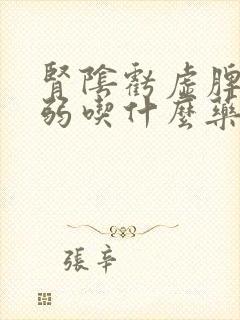 腎陰虧虛脾
弱喫什麼藥
張辛